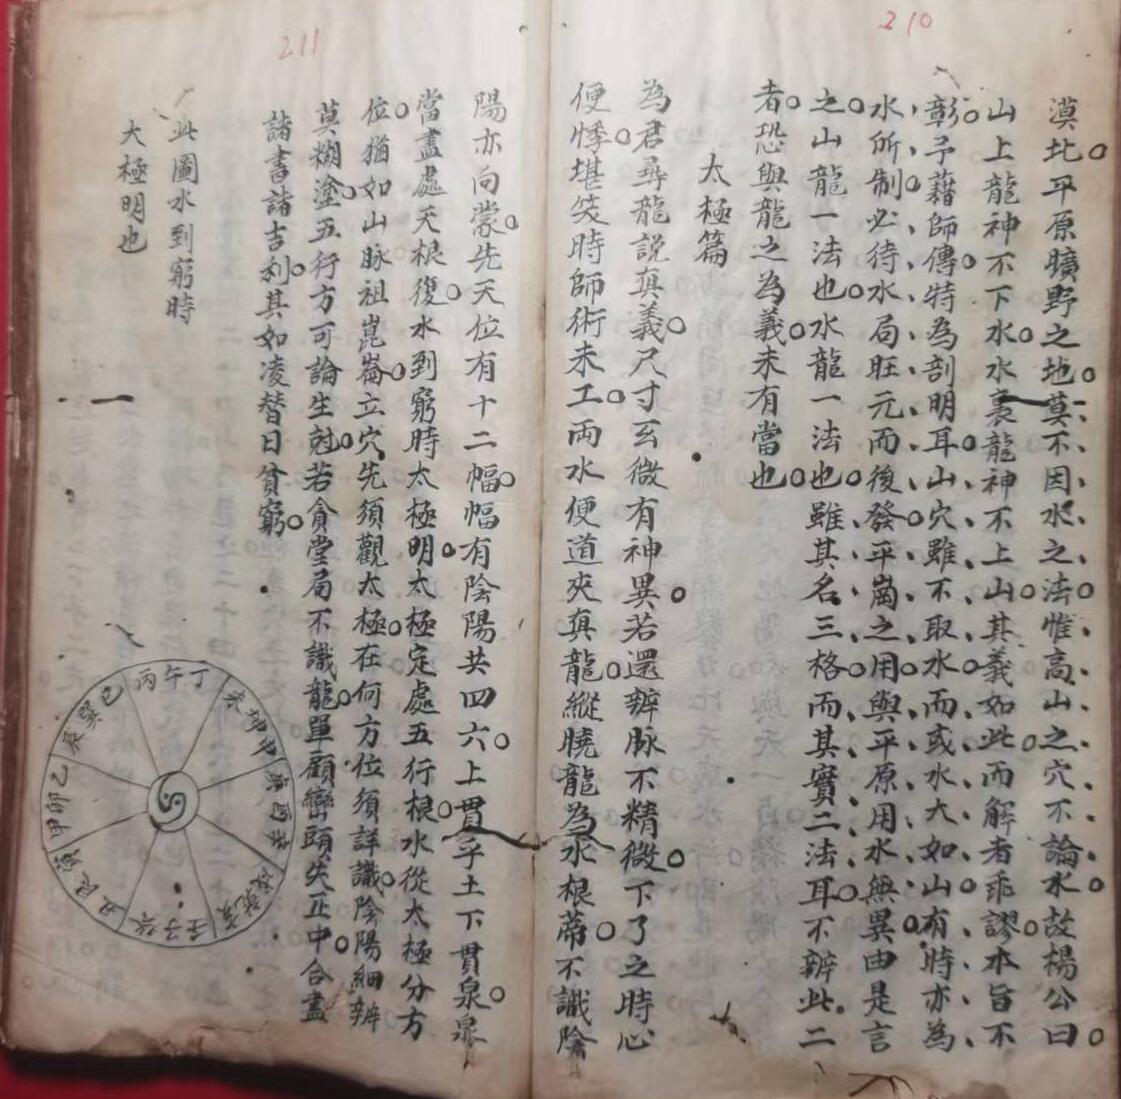 210
漠北平原曠野之地莫不因水之法惟高山之穴不論水故楊公曰
山上龍神不下水水裏龍神不上山其義如此而解者乖謬本旨不
彰予藉師傳特為剖明耳山穴雖不取水而或水大如山有時亦為
水所制必待水局旺元而後發平崗之用與平原用水無異由是言
之山龍一法也水龍一法也雖其名三格而其實二法耳不辨此二
者恐與龍之為義未有當也
太極篇
為君尋龍說真義尺寸玄微有神異若還辨脉不精微下了之時心
便悸堪笑時師術未工兩水便道夾真龍縱曉龍為水根蒂不識陰
211
陽亦向蒙先天位有十二幅幅有陰陽共四六上貫乎土下貫泉泉
當盡處天根復水到窮時太極明太極定處五行根水從太極分方
位猶如山脉祖崑崙立穴先須觀太極在何方位須詳識陰陽細辨
莫糊塗五行方可論生尅若貪堂局不識龍單顧巒頭失正中合盡
諸書諸吉利其如凌替日貧窮
此圖水到窮時
大極明也
丙午丁
未坤申
庚酉辛
戌乾亥
壬子癸
丑艮寅
甲卯乙
辰巽巳